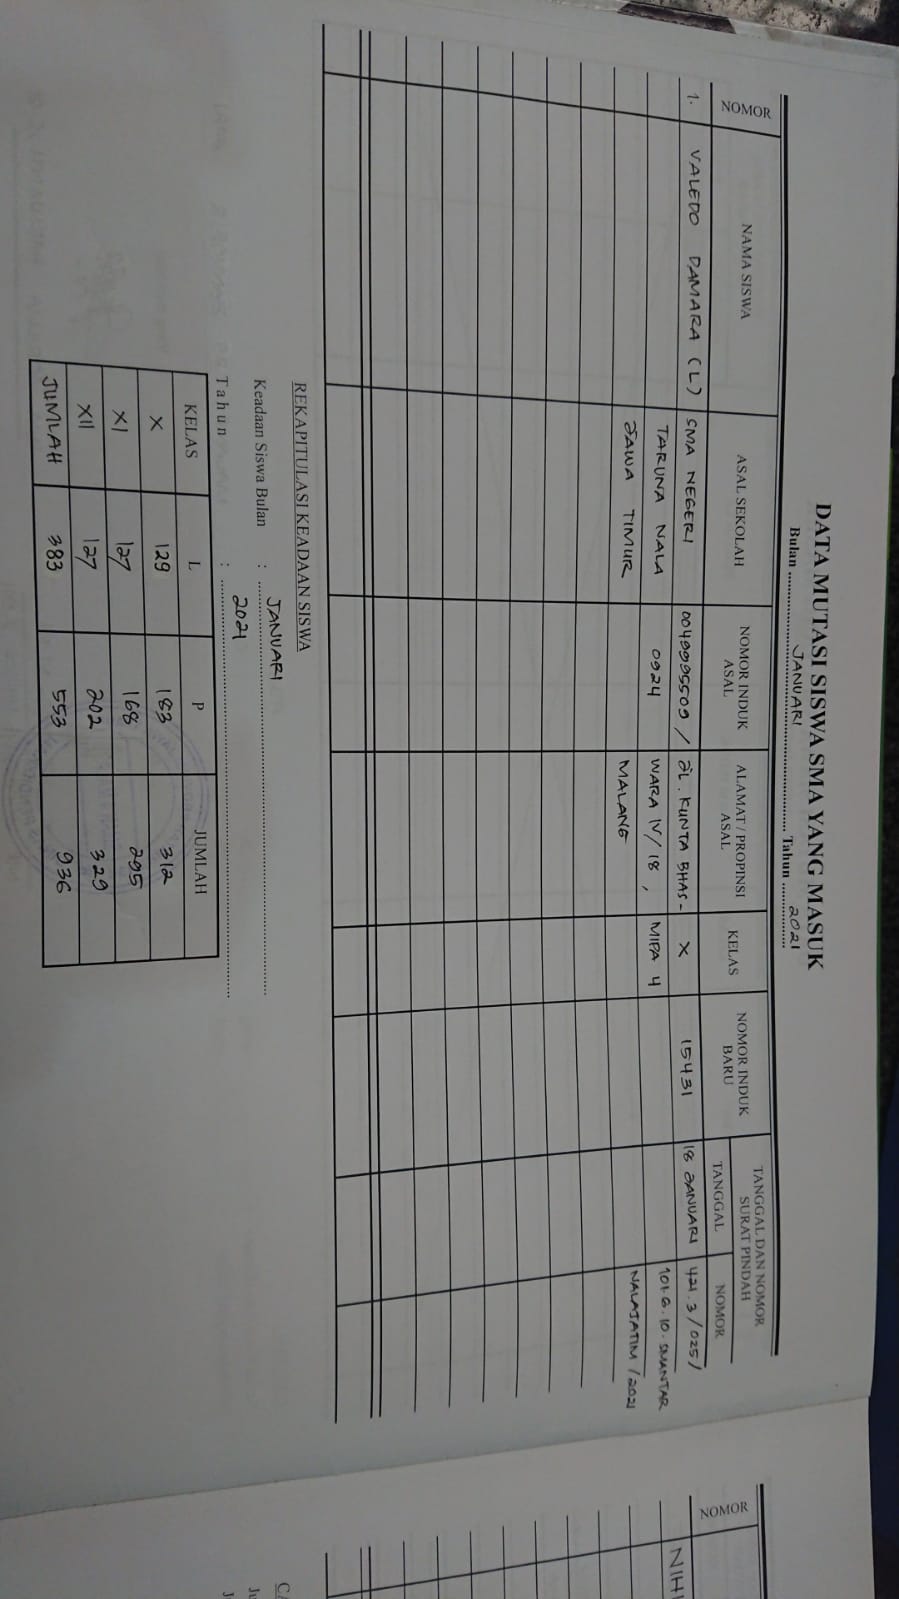 DATA MUTASI SISWA SMA YANG MASUK
Bulan JANUARI Tahun 2021
NOMOR NAMA SISWA ASAL SEKOLAH NOMOR INDUK ASAL ALAMAT / PROPINSI ASAL KELAS NOMOR INDUK BARU TANGGAL DAN NOMOR SURAT PINDAH
TANGGAL NOMOR
1. VALEDO DAMARA (L) SMA NEGERI 0049995509 / JL. KUNTA BHAS- X 15431 18 JANUARI 421.3/025/
TARUNA NALA 0924 WARA IV/18, MIPA 4 101.6.10.SMANTAR
JAWA TIMUR MALANG NALAJATIM/2021
REKAPITULASI KEADAAN SISWA
Keadaan Siswa Bulan : JANUARI
Tahun : 2021
KELAS L P JUMLAH
X 129 183 312
XI 127 168 295
XII 127 202 329
JUMLAH 383 553 936
NOMOR
NIHI